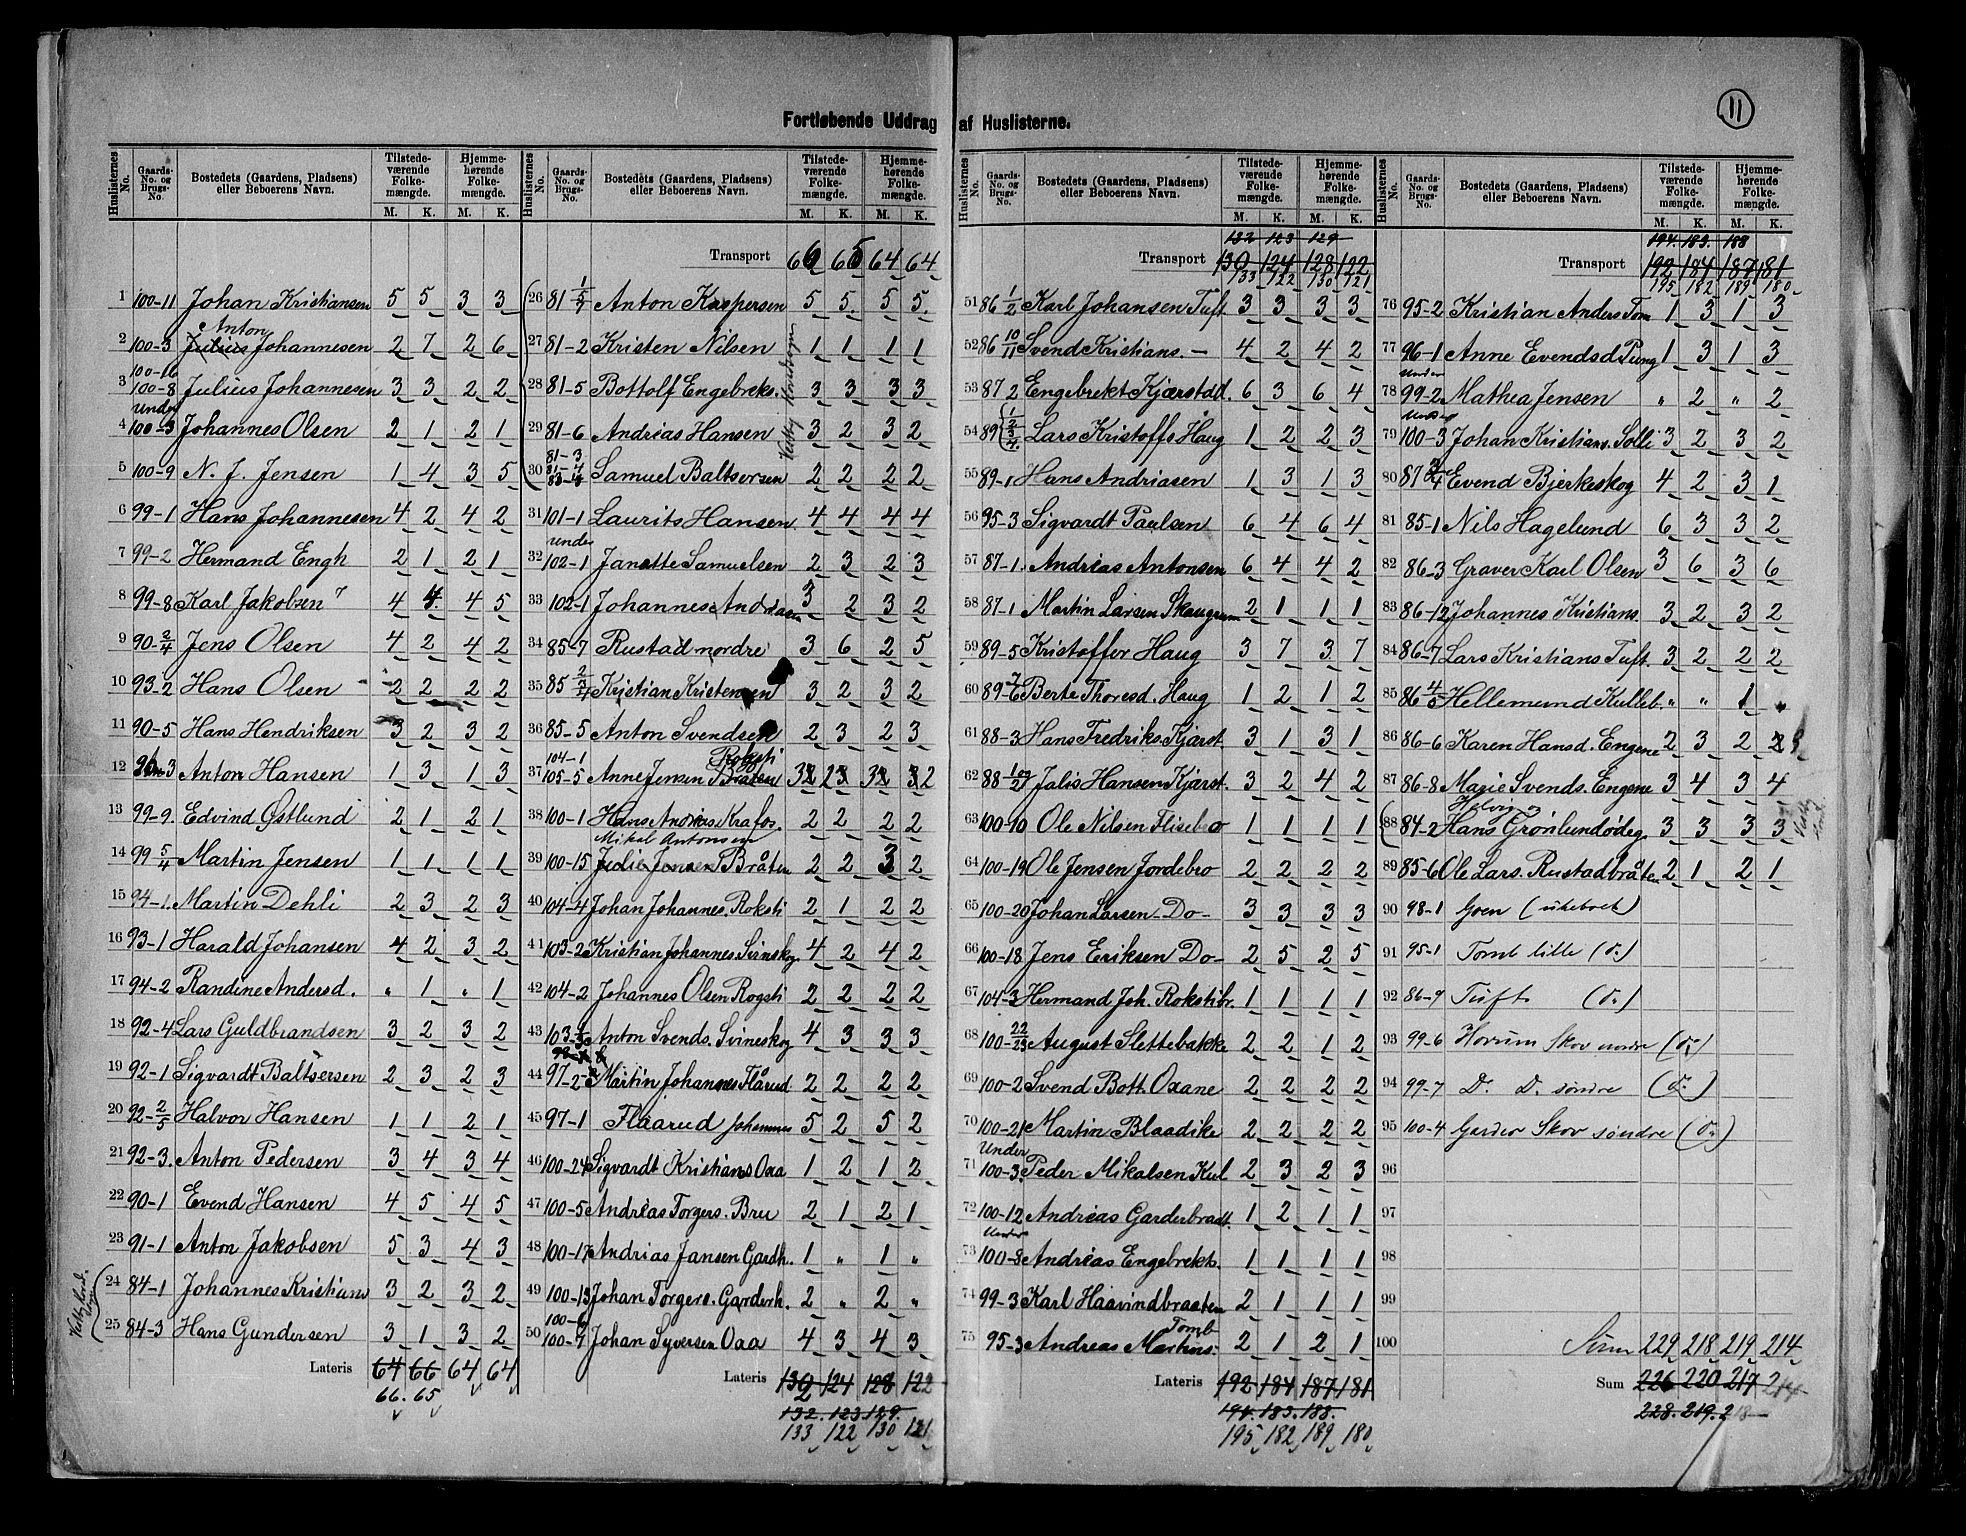 11
Fortløbende Uddrag af Huslisterne.
Huslisternes No. Gaards-No. og Brugs-No. Bostedets (Gaardens, Pladsens) eller Beboerens Navn. Tilstedeværende Folkemængde. M. K. Hjemmehørende Folkemængde. M. K.
1 100-11 Johan Kristiansen 5 5 3 3
Anton
2 100-3 Julius Johannesen 2 7 2 6
100-16
3 100-8 Julius Johannesen 3 3 2 2
under
4 100-3 Johannes Olsen 2 1 2 1
5 100-9 N. J. Jensen 1 4 3 5
6 99-1 Hans Johannesen 4 2 4 2
7 99-2 Hermand Engh 2 1 2 1
8 99-8 Karl Jakobsen 4 4 4 5
9 90-2/4 Jens Olsen 4 2 4 2
10 93-2 Hans Olsen 2 2 2 2
11 90-5 Hans Hendriksen 3 2 3 2
12 Anton Hansen 1 3 1 3
13 99-9 Edvind Østlund 2 1 2 1
14 99 5/4 Martin Jensen 1 1 1 1
15 94-1 Martin Dehli 2 3 2 3
16 93-1 Harald Johansen 4 2 3 2
17 94-2 Randine Andersd. " 1 " 1
18 92-4 Lars Guldbrandsen 3 2 3 2
19 92-1 Sigvardt Baltsersen 2 3 2 3
20 92-2/5 Halvor Hansen 1 1 2 1
21 92-3 Anton Pedersen 3 4 3 4
22 90-1 Evend Hansen 4 5 4 5
23 91-1 Anton Jakobsen 5 3 4 3
24 84-1 Johannes Kristians 3 2 3 2
25 84-3 Hans Gundersen 3 1 3 2
Lateris 64 66 64 64
66. 65
Huslisternes No. Gaards-No. og Brugs-No. Bostedets (Gaardens, Pladsens) eller Beboerens Navn. Tilstedeværende Folkemængde. M. K. Hjemmehørende Folkemængde. M. K.
Transport 66 65 64 64
26 81 Anton Kaspersen 5 5 5 5
27 81-2 Kristen Nilsen 1 1 1 1
28 81-5 Bottolf Engebreks. 3 3 3 3
29 81-6 Andreas Hansen 3 2 3 2
81-3
81-4
30 83-4 Samuel Baltsersen 2 2 2 2
31 101-1 Laurits Hansen 4 4 4 4
under
32 102-1 Janette Samuelsen 2 3 2 3
33 102-1 Johannes Andreasen 3 2 3 2
34 85-7 Rustad nordre 3 6 2 5
35 85 Kristian Kristensen 3 2 3 2
36 85-5 Anton Svendsen 2 3 2 3
104-1 Roksti
37 105-5 Anne Jensen Bråten 2
38 100-1 Hans Andreas Krafos. 2 2 2 2
Mikal Antonsen
39 100-15 Julie Jensen Bråten 2 2 3 2
40 104-4 Johan Johannes. Roksti 2 1 2 2
41 103-2 Kristian Johannes Svinskog 4 2 4 2
42 104-2 Johannes Olsen Rogsti 2 2 2 2
43 103 Anton Svends. Svineskog 4 3 3 3
44 97-2 Martin Johannes Flårud 2 2 2 2
45 97-1 Flaarud Johannes 5 2 5 2
46 100-24 Sigvardt Kristians Oaa 1 2 1 2
47 100-5 Andreas Torgers. Bru 2 1 2 1
48 100-17 Andrias Jansen Gardh. 1 " 1 "
49 100-13 Johan Torgers. Garderh. 2 " 2 "
100-6
50 100-7 Johan Syversen Oaa 4 3 4 3
Lateris 130 124 128 122
132. 123 129.
133 122 130 121
Huslisternes No. Gaards-No. og Brugs-No. Bostedets (Gaardens, Pladsens) eller Beboerens Navn. Tilstedeværende Folkemængde. M. K. Hjemmehørende Folkemængde. M. K.
132 123 129
Transport 130 124 128 122
133 122 130 121
51 86 1/2 Karl Johansen Tuft 3 3 3 3
52 86 10/11 Svend Kristians. - 4 2 4 2
53 87 2 Engebrekt Kjærstad. 6 3 6 4
54 89 1/2/3/4 Lars Kristoffs Haug 1 2 2 3
55 89-1 Hans Andriasen 1 3 1 3
56 95-3 Sigvardt Paulsen 6 4 6 4
57 87-1. Andreas Antonsen 6 4 4 2
58 87-1 Martin Larsen Skaugrum 2 1 1 1
59 89-5 Kristoffer Haug 3 7 3 7
60 89-7/6 Berte Thoresd. Haug 1 2 1 2
61 88-3 Hans Fredriks. Kjærst. 3 1 3 1
62 88 Jalis Hansen Kjærst. 3 2 4 2
63 100-10 Ole Nilsen Flisebo 1 1 1 1
64 100-19 Ole Jensen Jordebro 2 2 2 2
65 100-20 Johan Larsen - Do - 3 3 3 3
66 100-18 Jens Eriksen Do - 2 5 2 5
67 104-3 Hermand Joh. Rokstibr. 1 1 1 1
68 100-22/23 August Slettebakke 2 2 1 2
69 100-2 Svend Bott. Oxane 2 2 2 2
70 100-21 Martin Blaadike 2 2 2 2
Under
71 100-3 Peder Mikalsen Kul 2 3 2 3
72 100-12 Andreas Garderbradt. 1 2 1 1
under
73 100-8 Andreas Engebrekts. 1 1 1 1
74 99-3 Karl Haavindbraaten 2 1 1 1
Tomb
75 95-3 Andreas Martins. 2 1 2 1
Lateris 192 184 187 181
194. 183. 188.
195 182 189 180
Huslisternes No. Gaards-No. og Brugs-No. Bostedets (Gaardens, Pladsens) eller Beboerens Navn. Tilstedeværende Folkemængde. M. K. Hjemmehørende Folkemængde. M. K.
194. 183. 188
Transport 192 184 187 181
195 182 189 180
76 95-2 Kristian Anders Tom 1 3 1 3
77 96-1 Anne Evendsd Pung 1 3 1 3
under
78 99-2 Mathea Jensen " 2 " 2
under
79 100-3 Johan Kristians. Solli 3 2 3 2
80 87 3/4 Evend Bjerkeskog 4 2 3 1
81 85-1 Nils Hagelund 6 3 3 2
82 86-3 Graver Karl Olsen 3 6 3 6
83 86-12 Johannes Kristians. 3 2 3 2
84 86-7 Lars Kristians Tuft. 3 2 2 2
85 86 4/5 Hellemund Kulleb. " " 1 "
86 86-6 Karen Hansd. Engene 2 3 2 3
87 86-8 Marie Svends. Engene 3 4 3 4
88 84-2 Hans Grønlundødeg. 3 3 3 3
89 85-6 Ole Lars. Rustadbråten 2 1 2 1
90 98-1 Goen (ubeboet)
91 95-1 Tomb lille (do.)
92 86-9 Tuft (do.)
93 99-6 Horrum Skov nordre (do.)
94 99-7 Do. Do. søndre (do.)
95 100-4 Garder Skov søndre (do.)
96
97
98
99
100 Sum 229 218 219 214
Sum 226 220 217 214
228. 219. 218